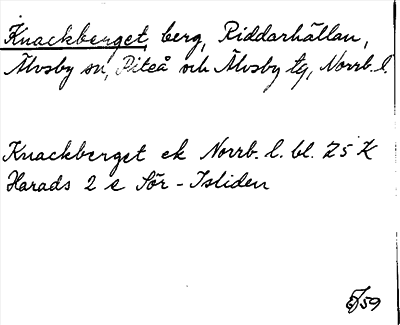 Knackberget, berg, Riddarhällan,
Älvsby sn, Piteå och Älvsby tg, Norrb. l.
Knackberget ek Norrb. l. bl. 25 K
Harads 2 e Sör-Isliden
5/59